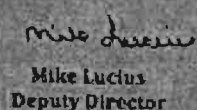 Mike Lucius
Mike Lucius
Deputy Director